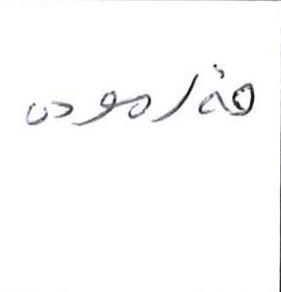 فەرموون